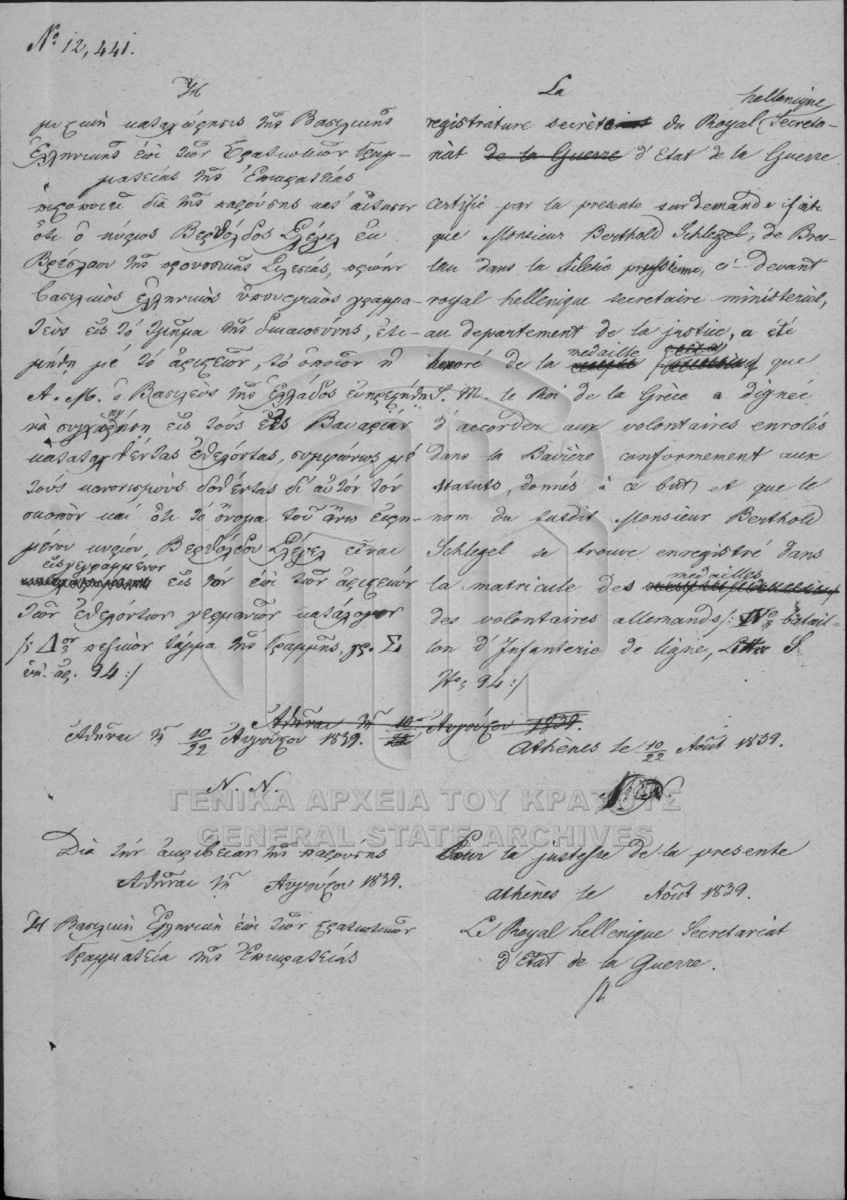 Nº 12,441.
Ἡ
μυστικὴ καταχώρησις τῆς Βασιλικῆς
Ἑλληνικῆς ἐπὶ τῶν Στρατιωτικῶν Γραμ-
ματείας τῆς Ἐπικρατείας
πιστοποιεῖ διὰ τῆς παρούσης κατ' αἴτησιν
ὅτι ὁ κύριος Βερθόλδος Σλέγελ ἐκ
Βρεσλάου τῆς προυσικῆς Σιλεσίας, πρώην
βασιλικὸς ἑλληνικὸς ὑπουργικὸς γραμμα-
τεὺς εἰς τὸ τμῆμα τῆς δικαιοσύνης, ἐτι-
μήθη μὲ τὸ ἀριστεῖον, τὸ ὁποῖον ἡ
Α. Μ. ὁ Βασιλεὺς τῆς Ἑλλάδος εὐηρεστήθη
νὰ συγχωρήσῃ εἰς τοὺς εἰς Βαυαρίαν
καταταχθέντας ἐθελοντάς, συμφώνως μὲ
τοὺς κανονισμοὺς δοθέντας δι' αὐτὸν τὸν
σκοπὸν καὶ ὅτι τὸ ὄνομα τοῦ ἄνω εἰρη-
μένου κυρίου Βερθόλδου Σλέγελ εἶναι
εἰσγεγραμμένον εἰς τὸν ἐπὶ τῶν ἀριστείων
τῶν ἐθελόντων γερμανῶν κατάλογον
/: Δον πεζικὸν τάγμα τῆς Γραμμῆς, γρ. Σ
ὑπ. ἀρ. 94 :/
Ἀθῆναι τῇ 10/22 Αὐγούστου 1839.
Ἀθῆναι τῇ 10 Αὐγούστου 1839.
N. N.
Διὰ τὴν ἀκρίβειαν τῆς παρούσης
Ἀθῆναι τῇ Αὐγούστου 1839.
Ἡ Βασιλικὴ Ἑλληνικὴ ἐπὶ τῶν Στρατιωτικῶν
Γραμματεία τῆς Ἐπικρατείας
La
registrature secrète du Royal hellenique Secreta-
riat de la Guerre d'Etat de la Guerre
certifie par la presente sur demande faite
que Monsieur Berthold Schlegel, de Bres-
lau dans la Silésie prussienne, ci-devant
royal hellenique secretaire ministeriel,
au departement de la justice, a été
honoré de la medaille que
S. M. le Roi de la Grèce a digneé
d'accorder aux volontaires enrolés
dans la Bavière conformement aux
statuts, donnés à ce but et que le
nom du susdit Monsieur Berthold
Schlegel se trouve enregistré dans
la matricule des medailles
des volontaires allemands /: IVe batail-
lon d'Infanterie de ligne, Litter S
No. 94 :/
Athènes le 10/22 Août 1839.
Pour la justesse de la presente
Athènes le Août 1839.
Le Royal hellenique Secretariat
d'Etat de la Guerre.
ΓΕΝΙΚΑ ΑΡΧΕΙΑ ΤΟΥ ΚΡΑΤΟΥΣ
GENERAL STATE ARCHIVES